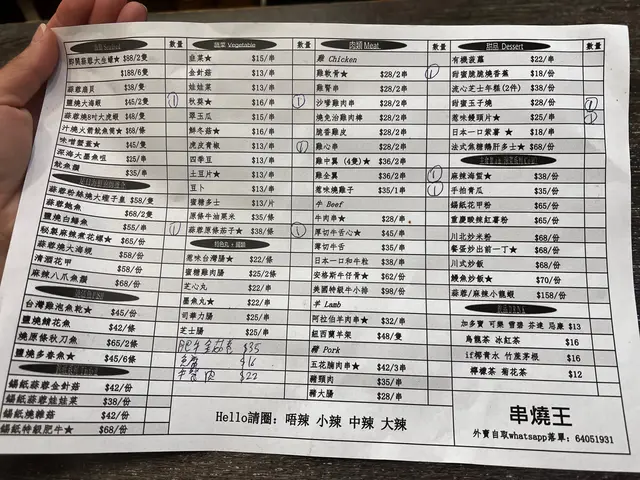 數量
蔬菜 Vegetable
數量
肉類 Meat
數量
甜品 Dessert
數量
即開蒜蓉大生蠔★ $88/2隻
$188/6隻
蒜蓉扇貝 $38/2隻
鹽燒大海蝦 $45/2隻 ①
蒜蓉8吋大虎蝦 $48/隻
汁燒火箭魷魚筒★ $68/條
味噌蟹蓋★ $45/隻
深海大墨魚咀 $25/串
魷魚鬚 $35/串
蒜蓉粉絲燒大蟶子皇 $58/隻
蒜蓉鮑魚 $68/2隻
鹽燒白鱔魚 $55/串 ①
秘製麻辣煮花螺★ $65/份
蒜蓉燒大海蜆 $58/份
清酒花甲 $58/份
麻辣八爪魚鬚 $68/份
台灣雞泡魚乾★ $45/份
鹽燒鯖花魚 $42/條
燒原條秋刀魚 $65/2條
鹽燒多春魚★ $45/6條
錫紙蒜蓉金針菇 $42/份
錫紙蒜蓉娃娃菜 $38/份
錫紙燒雜菇 $42/份
錫紙特級肥牛★ $68/份
韭菜★ $15/串
金針菇 $13/串
娃娃菜 $13/串
秋葵★ $16/串 ①
翠玉瓜 $15/串
鮮冬菇★ $16/串
虎皮青椒 $13/串
四季豆 $13/串
土豆片★ $13/串
豆卜 $13/串
蜜糖多士 $13/片
原條牛油粟米 $35/條
蒜蓉原條茄子★ $38/條 ①
特色丸,腸類
惹味台灣腸 $22/條
蜜糖雞肉腸 $25/2條
芝心丸 $22/串
墨魚丸★ $22/串
司華力腸 $25/串
芝士腸 $25/串
肥牛金菇卷 $35
$16
$22
雞 Chicken
雞軟骨★ $28/2串 ①
雞腎串 $28/2串
沙嗲雞肉串 $28/2串
燒免治雞肉棒 $28/2串
脆香雞皮 $28/2串
雞心串 $28/2串
雞中翼 (4隻)★ $36/2串
雞全翼 $36/2串 ①
惹味燒雞子 $35/1串 ①
牛 Beef
牛肉串★ $28/串
厚切牛舌心★ $45/串
薄切牛舌 $35/串
日本一口和牛粒 $38/串
安格斯牛仔骨★ $62/份
美國特級牛小排 $98/份
羊 Lamb
阿拉伯羊肉串★ $32/串
紐西蘭羊架 $48/隻
豬 Pork
五花腩肉串★ $42/3串
豬頸肉 $35/串
豬大腸 $28/串
有機菠蘿 $22/串
甜蜜脆脆燒香蕉 $18/份
流心芝士年糕(2件) $38/份
甜蜜玉子燒 $28/份 ①
惹味饅頭片★ $25/串 ①
日本一口紫薯★ $18/串
法式焦糖鵝肝多士★ $68/份
麻辣海蜇★ $38/份
手拍青瓜 $35/份
錫紙花甲粉 $65/份
重慶酸辣紅薯粉 $65/份
川北炒米粉 $68/份
餐蛋炒出前一丁★ $68/份
川式炒飯 $68/份
鰻魚炒飯★ $70/份
蒜蓉/麻辣小龍蝦 $158/份
加多寶 可樂 雪碧 芬達 马康 $13
烏龍茶 冰紅茶 $16
if檸青水 竹蔗茅根 $16
檸檬茶 菊花茶 $12
Hello請圈: 唔辣 小辣 中辣 大辣
串燒王
外賣自取whatsapp落單: 64051931